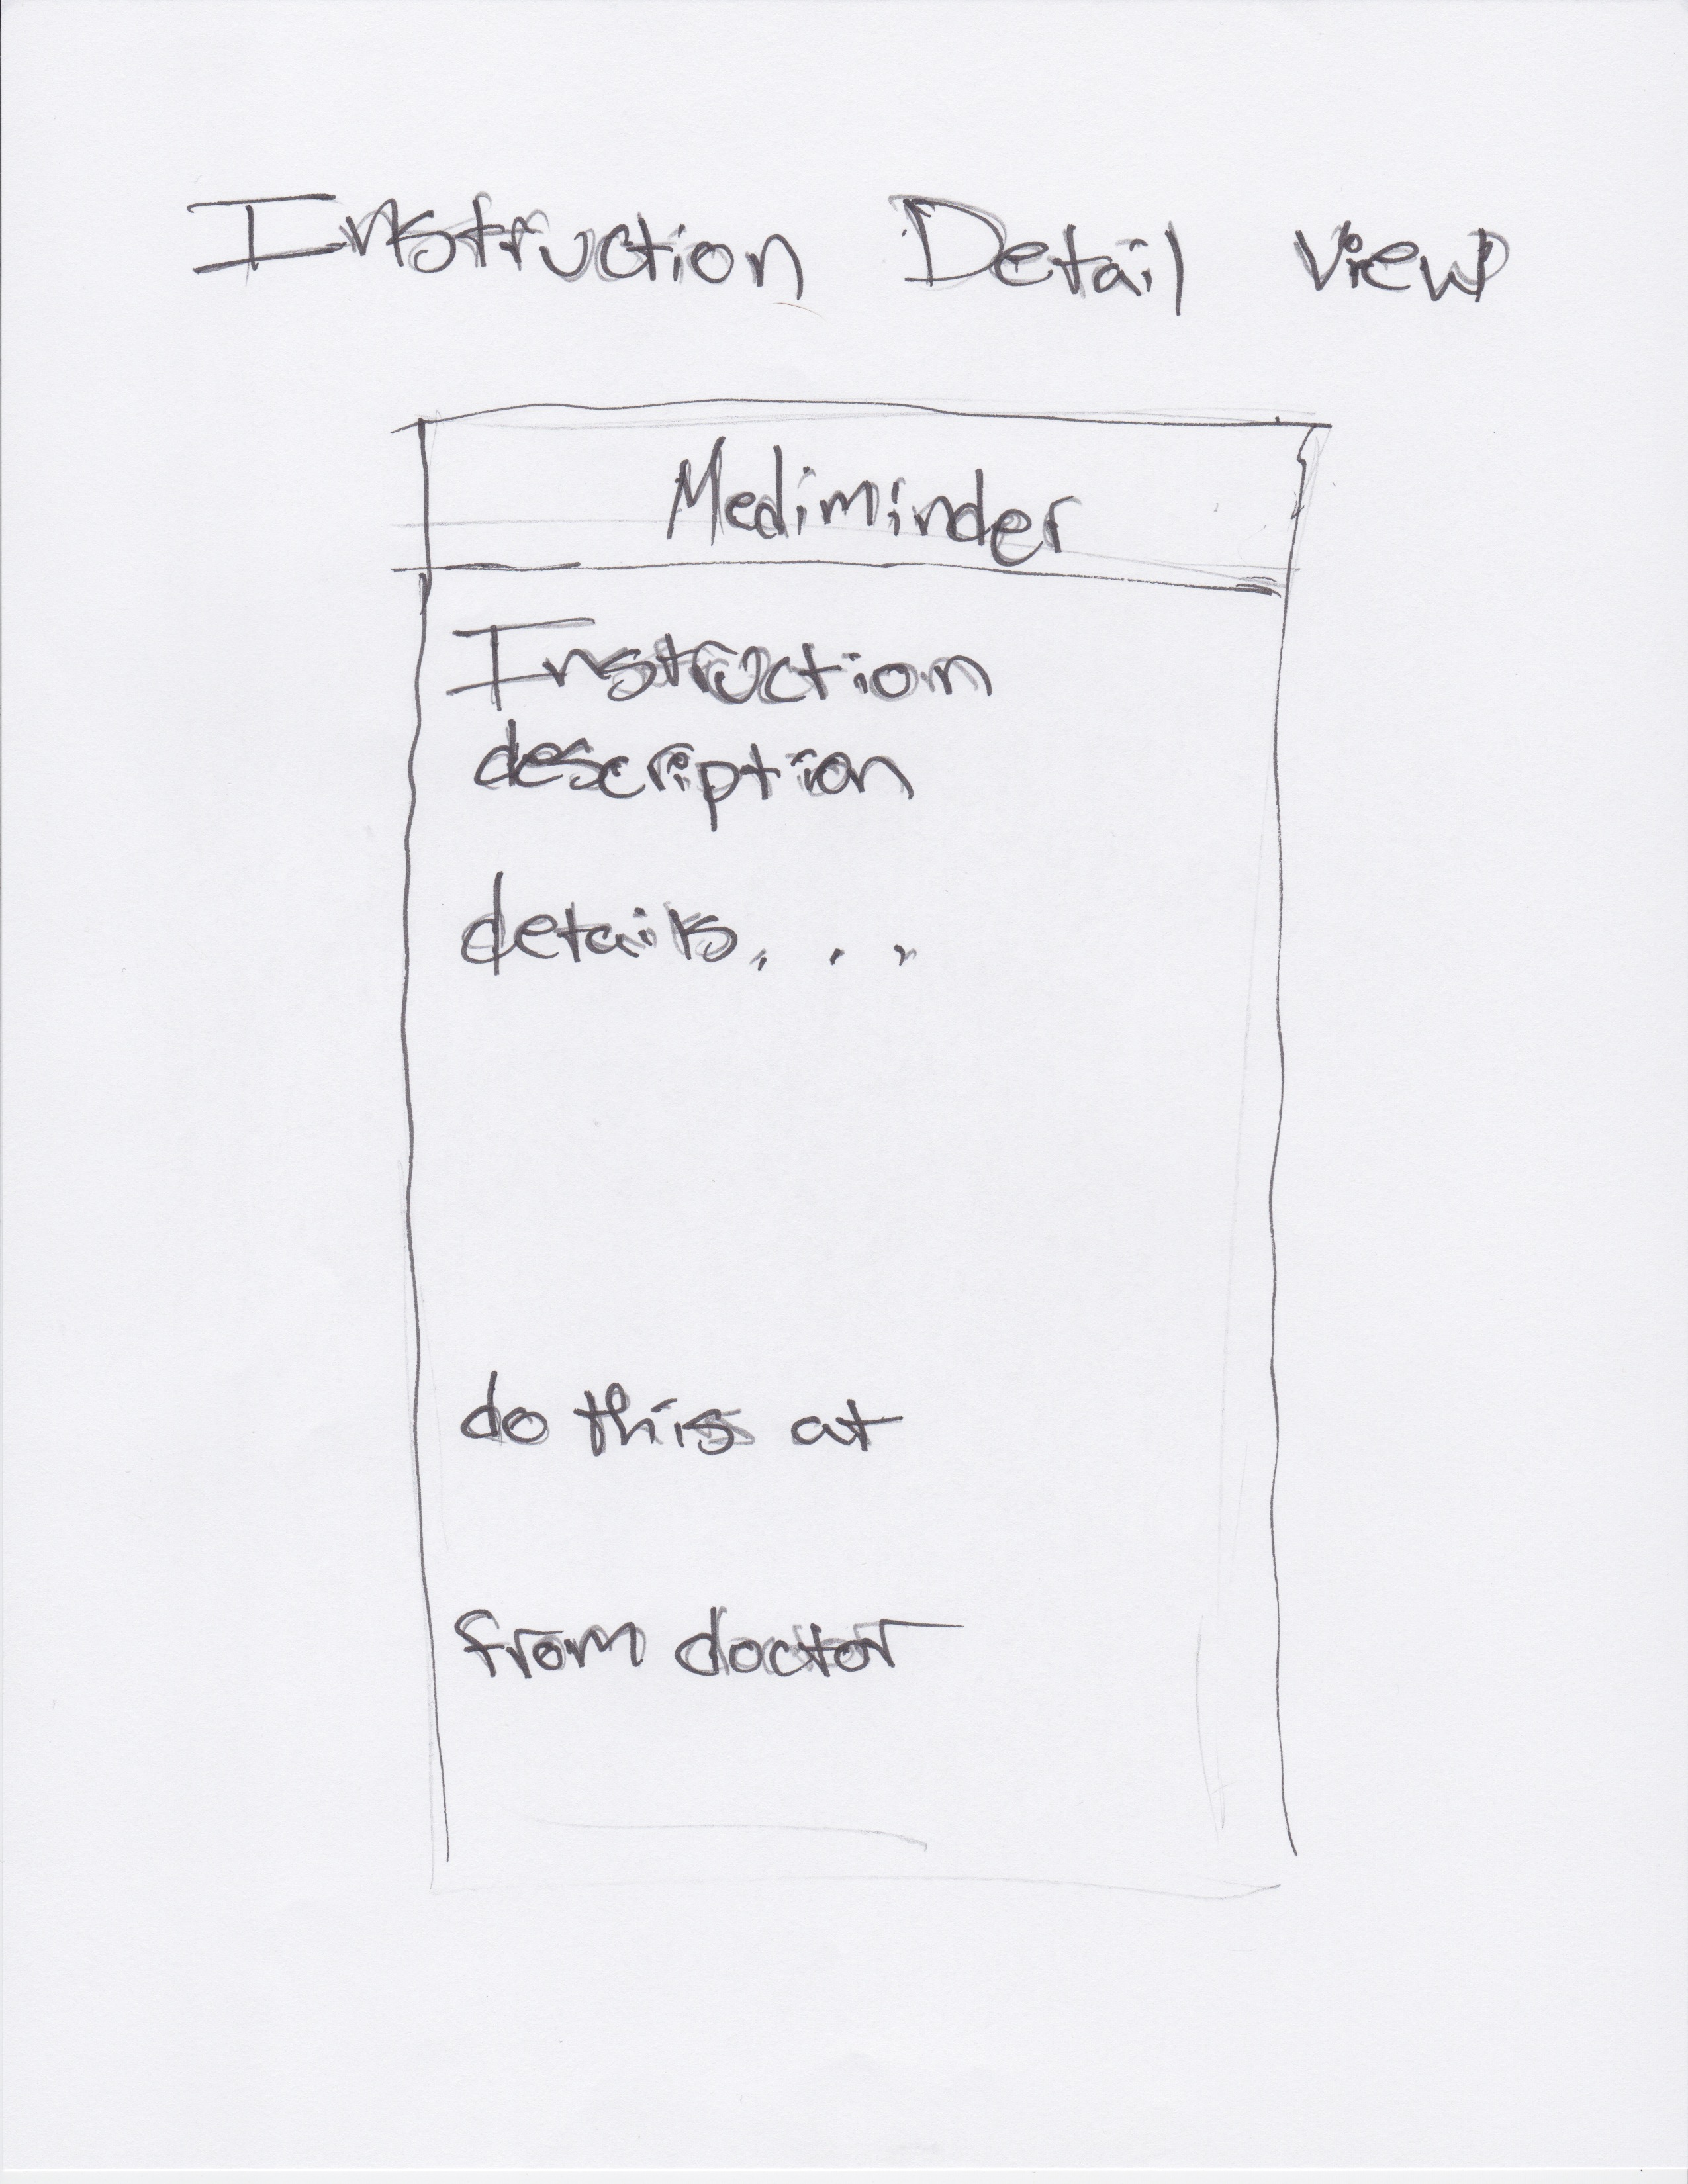 Instruction Detail view
Mediminder
Instruction
description
details...
do this at
from doctor